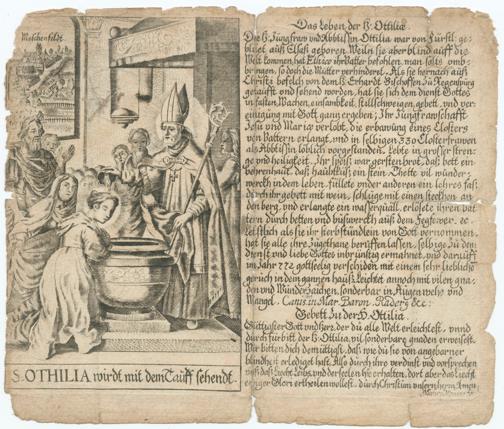 Moschenfeldt.
S. OTHILIA wirdt mit dem Tauff sehendt.
Das Leben der H: Ottiliæ
Die H: Jungfraw und Abbtissin Ottilia war von Fürstl: ge-
blüet auß Elsaß geboren. Weiln sie aber blind auff die
Welt kommen, hat Ethico ihr Vatter befohlen, man solts umb-
bringen, so doch die Mutter verhinderet. Als sie hernach auß
Christi befelch von dem H: Erhardt Bischoffen zu Regenspurg
getaufft und sehend worden, hat sie sich dem dienst Gottes
in fasten, Wachen, einsambkeit, stillschweigen, gebett, und ver-
einigung mit Gott gantz ergeben; Ihr Jungfrawschafft
Jesu und Mariæ verlobt, die erbawung eines Closters
von Vattern erlangt, und in selbigen 330 Closterfrawen
als Abbtissin löblich vorgestanden, lebte in grosser stren-
ge und heiligkeit. Ihr speiß war gerstenbrot, daß bett ein
beerenhaut, daß haubtküß ein stein. Thette vil wunder-
werckh in dem leben, füllete under anderen ein lehres faß
durch ihr gebett mit wein, schluge mit einen steckhen an
den berg, und erlangte ein wasserquäll, erlösete ihren vat-
tern durch betten und bußwerckh auß dem Fegfewr. ec.
letstlich als sie ihr sterbstündlein von Gott vernommen,
hat sie alle ihre zugethane berüffen lassen, selbige zu dem
dienst und liebe Gottes inbrünstig ermahnet, und darauff
im Jahr 772 gottselig verschiden mit einem sehr liebliche
geruch in dem gantzen hauß, leichtet annoch mit vilen gna-
den und Wunderzaichen, sonderbar in Augenwehe und
Mangel. Canis: in Mar. Baron. Rader9 &c:
Gebett zu der H. Ottilia.
Güttigster Gott und herr der du alle Welt erleichtest, unnd
durch fürbitt der H: Ottilia, vil sonderbare gnaden erweisest.
Wir bitten dich demüttigst, daß wie du sie von angebarner
blindheit erlediget hast, Also durch ihre verdinst und vorsprechen
unß daß Liecht Leibs, und der seelen hie erhalten, dort aber das Liecht
ewiger Glori ertheilen wollest, durch Christum unsern herrn. Amen.